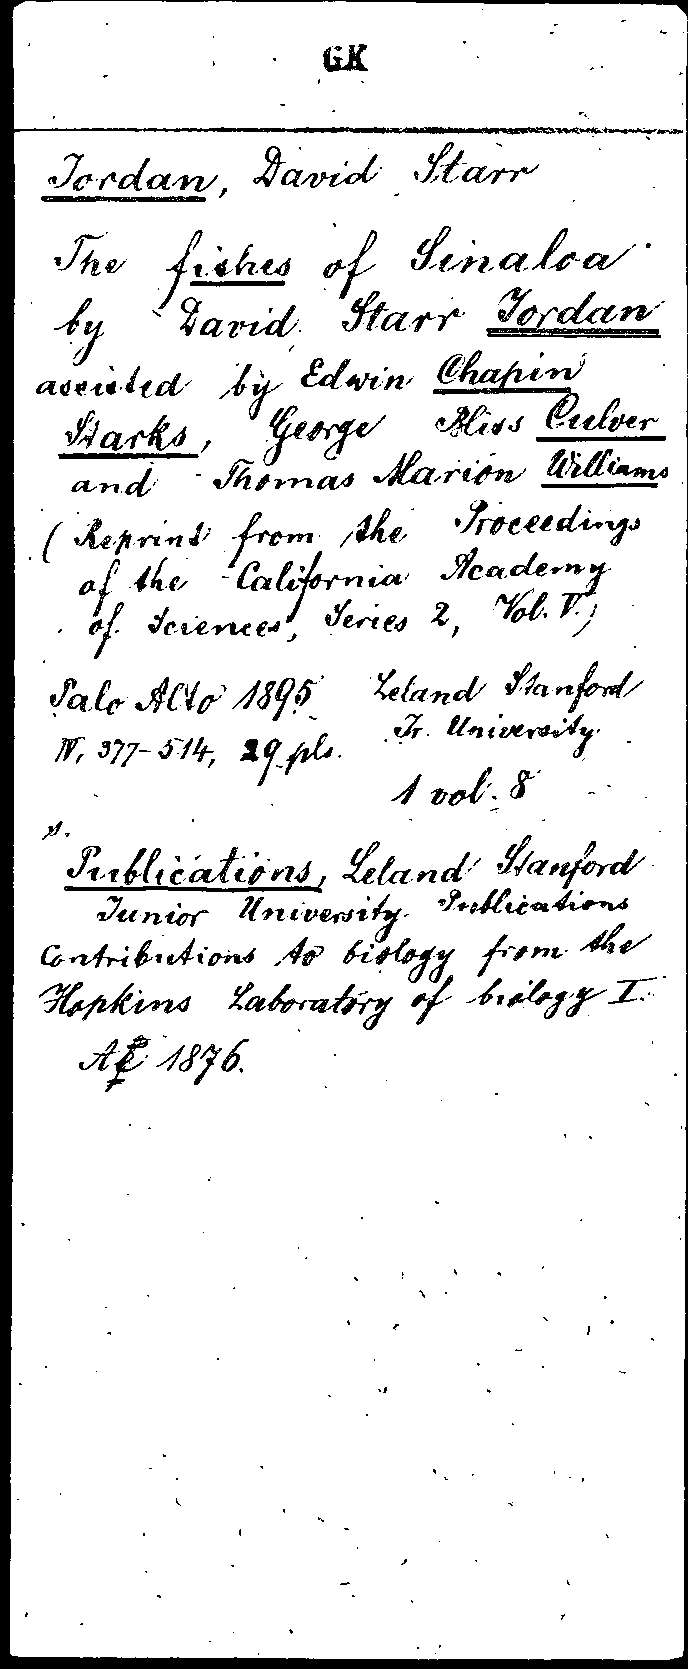 GK
Jordan, David Starr
The fishes of Sinaloa
by David Starr Jordan
assisted by Edwin Chapin
Starks, George Bliss Culver
and Thomas Marion Williams
(Reprint from the Proceedings
of the California Academy
of Sciences, Series 2, Vol. V.)
Palo Alto 1895 Leland Stanford
Jr. University
IV, 377-514, 29 pls.
1 vol. 8
s.
Publications, Leland Stanford
Junior University Publications
Contributions to biology from the
Hopkins Laboratory of biology I.
1876.